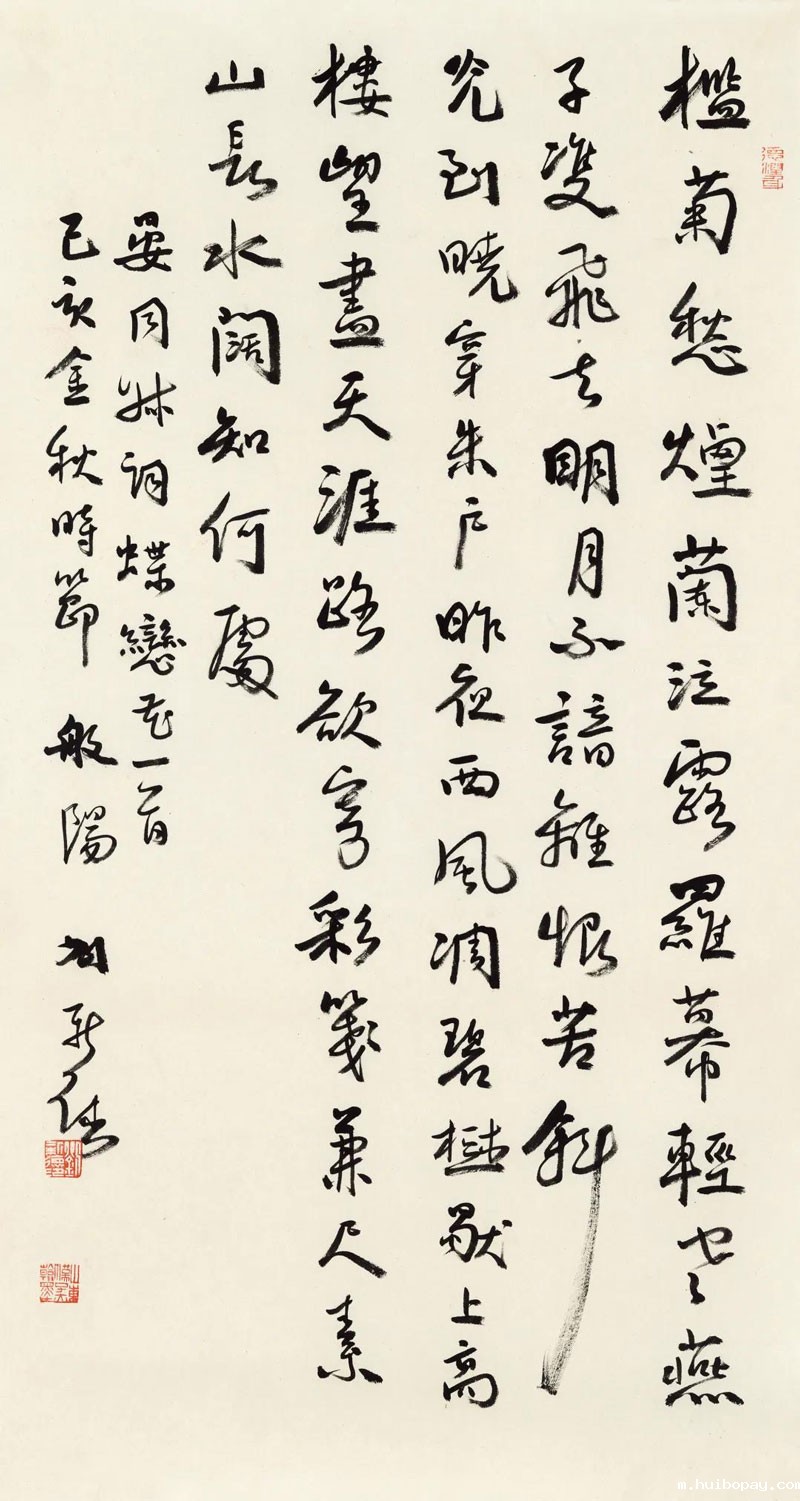 檻菊愁煙蘭泣露羅幕輕寒燕
子雙飛去明月不諳離恨苦斜
光到曉穿朱戶昨夜西風凋碧樹獨上高
樓望盡天涯路欲寄彩箋兼尺素
山長水闊知何處
晏同叔詞蝶戀花一首
己亥金秋時節 般陽 劉新德
m.huibopay.com